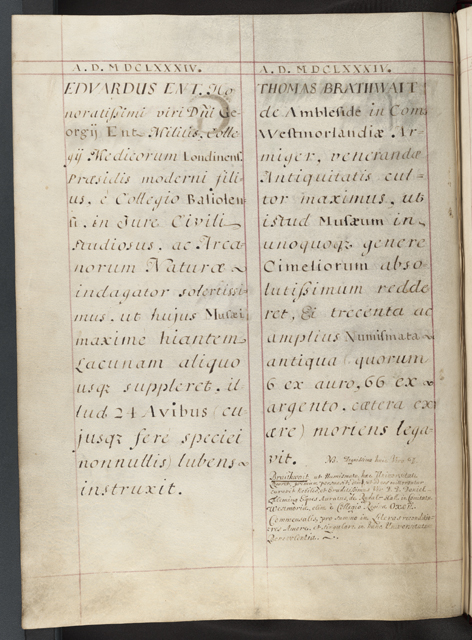 A. D. MDCLXXXIV.
EDVARDUS ENT, Ho
noratissimi viri Dñi Ge-
orgij Ent Militis, Colle
gij Medicorum Londinens.
Præsidis moderni fili-
us, è Collegio Baliolen-
si, in Jure Civili
studiosus, ac Arca-
norum Naturæ
indagator solertissi-
mus, ut hujus Musæi
maxime hiantem
Lacunam aliquo
usqꝫ suppleret, il
lud 24 Avibus (cu
jusqꝫ fere speciei
nonnullis) lubens
instruxit.
A. D. MDCLXXXIV.
THOMAS BRATHWAIT
de Ambleside in Com.
Westmorlandiæ Ar-
miger, venerandæ
Antiquitatis cul-
tor maximus, ut
istud Musæum in
unoquoqꝫ genere
Cimeliorum abso
lutissimum redde
ret, & trecenta ac
amplius Numismata
antiqua (quorum
6 ex auro, 66 ex
argento, cætera ex
ære) moriens lega
vit.
Brathwait, ut Numismata hæc Universitati
Westmoriæ, olim è Collegio Reginæ OXON.
Commensalis, pro summo in Literas